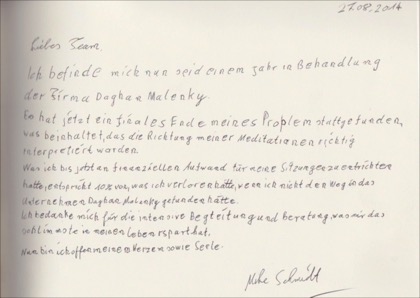 27.08.2014
Liebes Team,
Ich befinde mich nun seid einem Jahr in Behandlung
der Firma Daghan Malenky.
Es hat jetzt ein finales Ende meines Problem stattgefunden,
was beinhaltet, das die Richtung meiner Meditationen richtig
interpretiert worden.
Was ich bis jetzt an finanziellen Aufwand für meine Sitzungen zu entrichten
hatte, entspricht 10% von, was ich verloren hätte, wenn ich nicht den Weg in das
Unternehmen Daghan Malenky gefunden hätte.
Ich bedanke mich für die intensive Begleitung und beratung, was mir das
schlimmste in meinen Leben erspart hat.
Nun bin ich offen meinen Herzen sowie Seele.
Schmidt